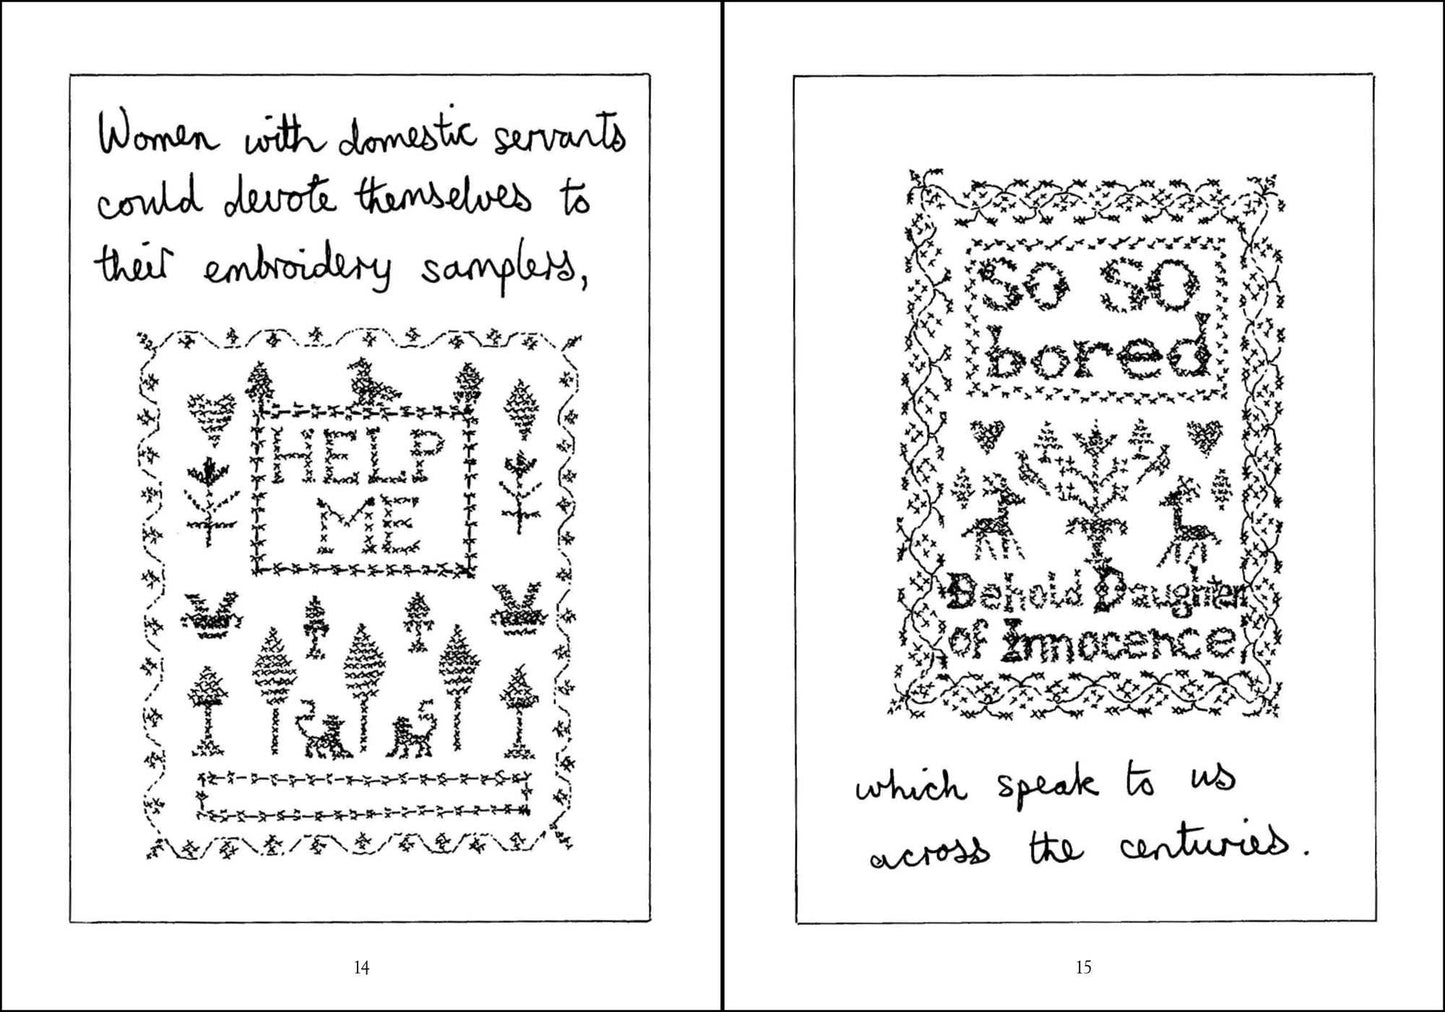 Women with domestic servants
could devote themselves to
their embroidery samplers,
HELP
ME
14
So SO
bored
Behold Daughter
of Innocence
which speak to us
across the centuries.
15